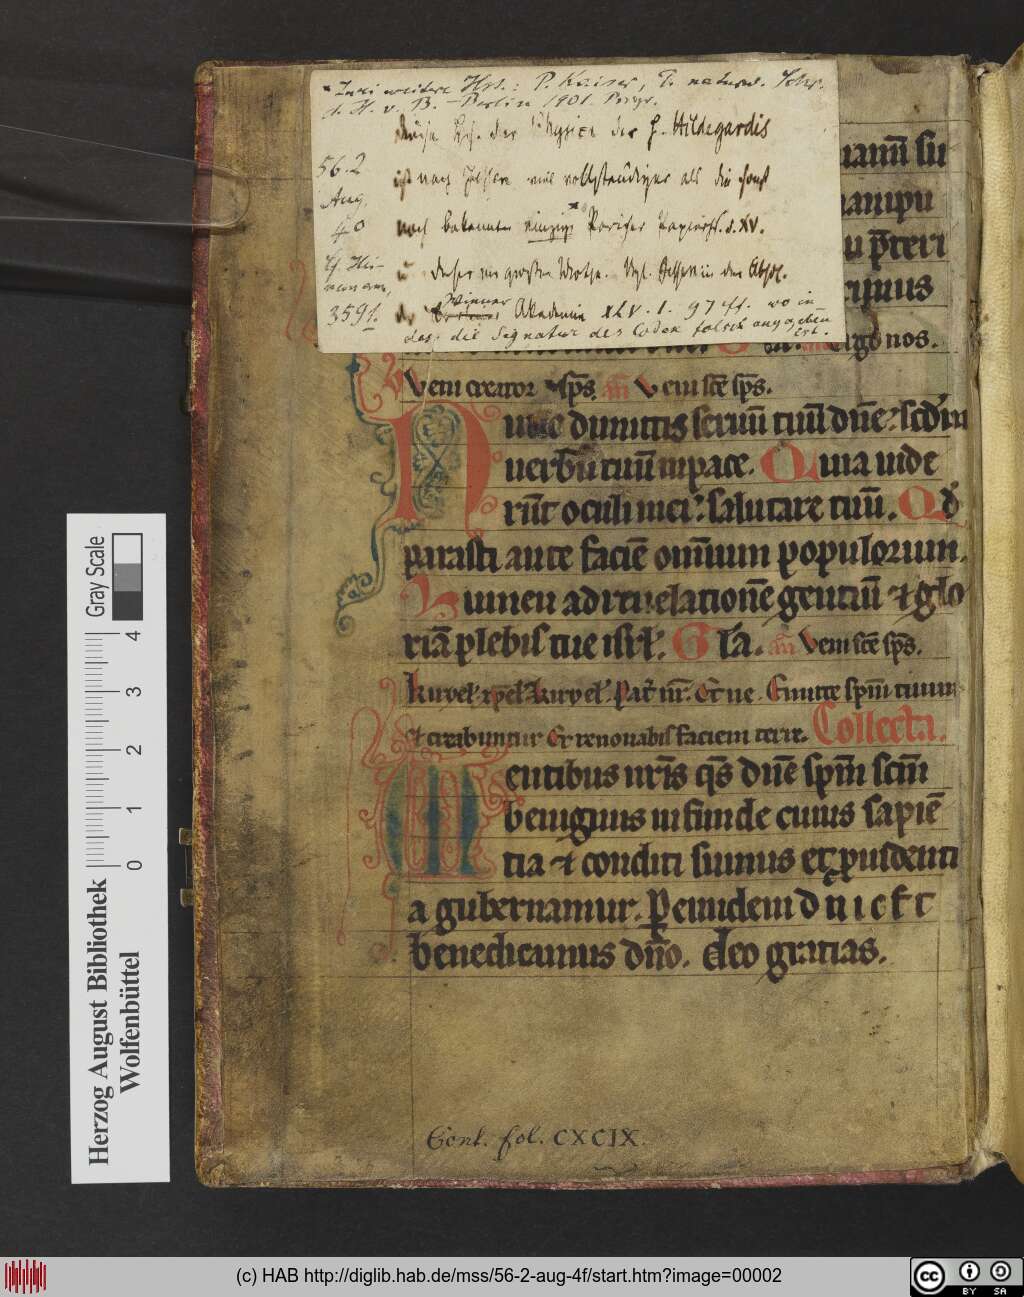 * Zwei weitere Hss.: P. Kaiser, D. naturw. Schr.
d. H. v. B. – Berlin 1901. Progr.
56.2
Aug.
4°
3591.
der Physica der h. Hildegardis
ist nach vollständiger als die sonst
noch bekannte einzige* Pariser Papierhs. s. XV.
Vgl. in den Abhdl.
der Wiener Akademie XLV. 1. 97 ff. wo in
dess die Signatur des Codex falsch angegeben
ist.
nanu su
u pͬteri
ergo nos.
Veni creator sps. an Veni sce sps.
Nunc dimittis seruu tuu dne: scdm
uerbu tuu in pace. Quia uide
runt oculi mei: salutare tuu. Qd
parasti ante facie omnium populorum.
Lumen ad reuelatione gentiu ⁊ glo
ria plebis tue isrl. Gla. an Veni sce sps.
kyrel. xpel. kyrel. Pat nr. Et ne. Emitte spm tuum
et creabuntur Et renouabis faciem terre. Collecta.
Mentibus nris qs dne spm scm
benignus infunde cuius sapie
tia ⁊ conditi sumus et puidenti
a gubernamur. P eiundem d n i c f t
benedicamus dno. deo gratias.
Cont. fol. CXCIX.
Herzog August Bibliothek
Wolfenbüttel
0 1 2 3 4
Gray Scale
(c) HAB http://diglib.hab.de/mss/56-2-aug-4f/start.htm?image=00002
cc BY SA